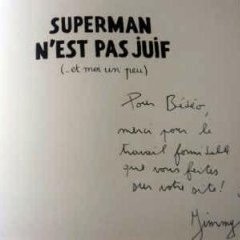 SUPERMAN
N'EST PAS JUIF
(...et moi un peu)
Pour Bédéo,
merci pour le
travail formidable
que vous faites
sur votre site!
Jimmy